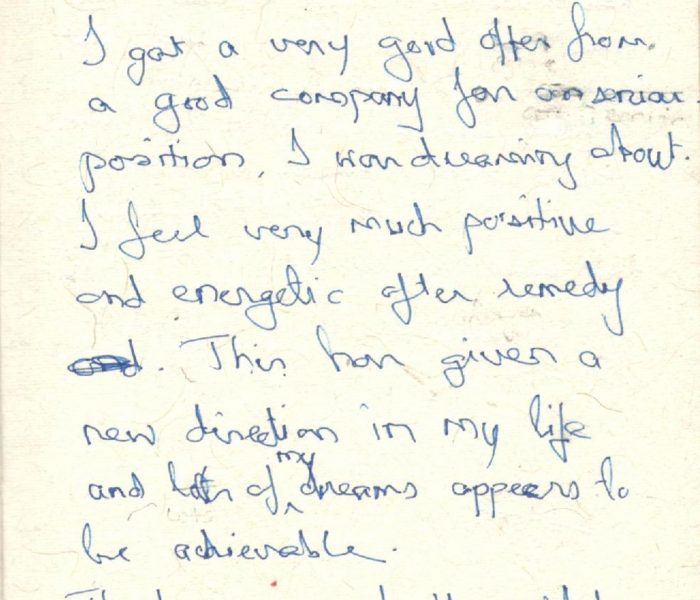 I got a very good offer from
a good company for on senior
position, I was dreaming about.
I feel very much positive
and energetic after remedy
. This has given a
new direction in my life
and lots of my dreams appears to
be achievable.